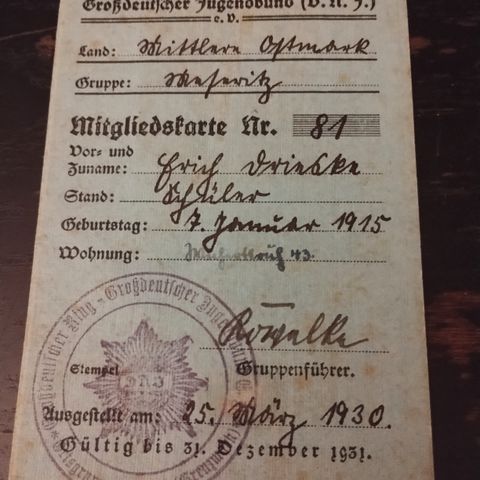 Großdeutscher Jugendbund (D.N.J.)
e.V.
Land: Mittlere Ostmark
Gruppe: Meseritz
Mitgliedskarte Nr. 81
Vor- und
Zuname: Erich Drieske
Stand: Schüler
Geburtstag: 7. Januar 1915
Wohnung: 43.
Großdeutscher Jugend
Rowalke
Stempel
Gruppenführer.
Ausgestellt am: 25. März 1930.
Gültig bis 31. Dezember 1931.